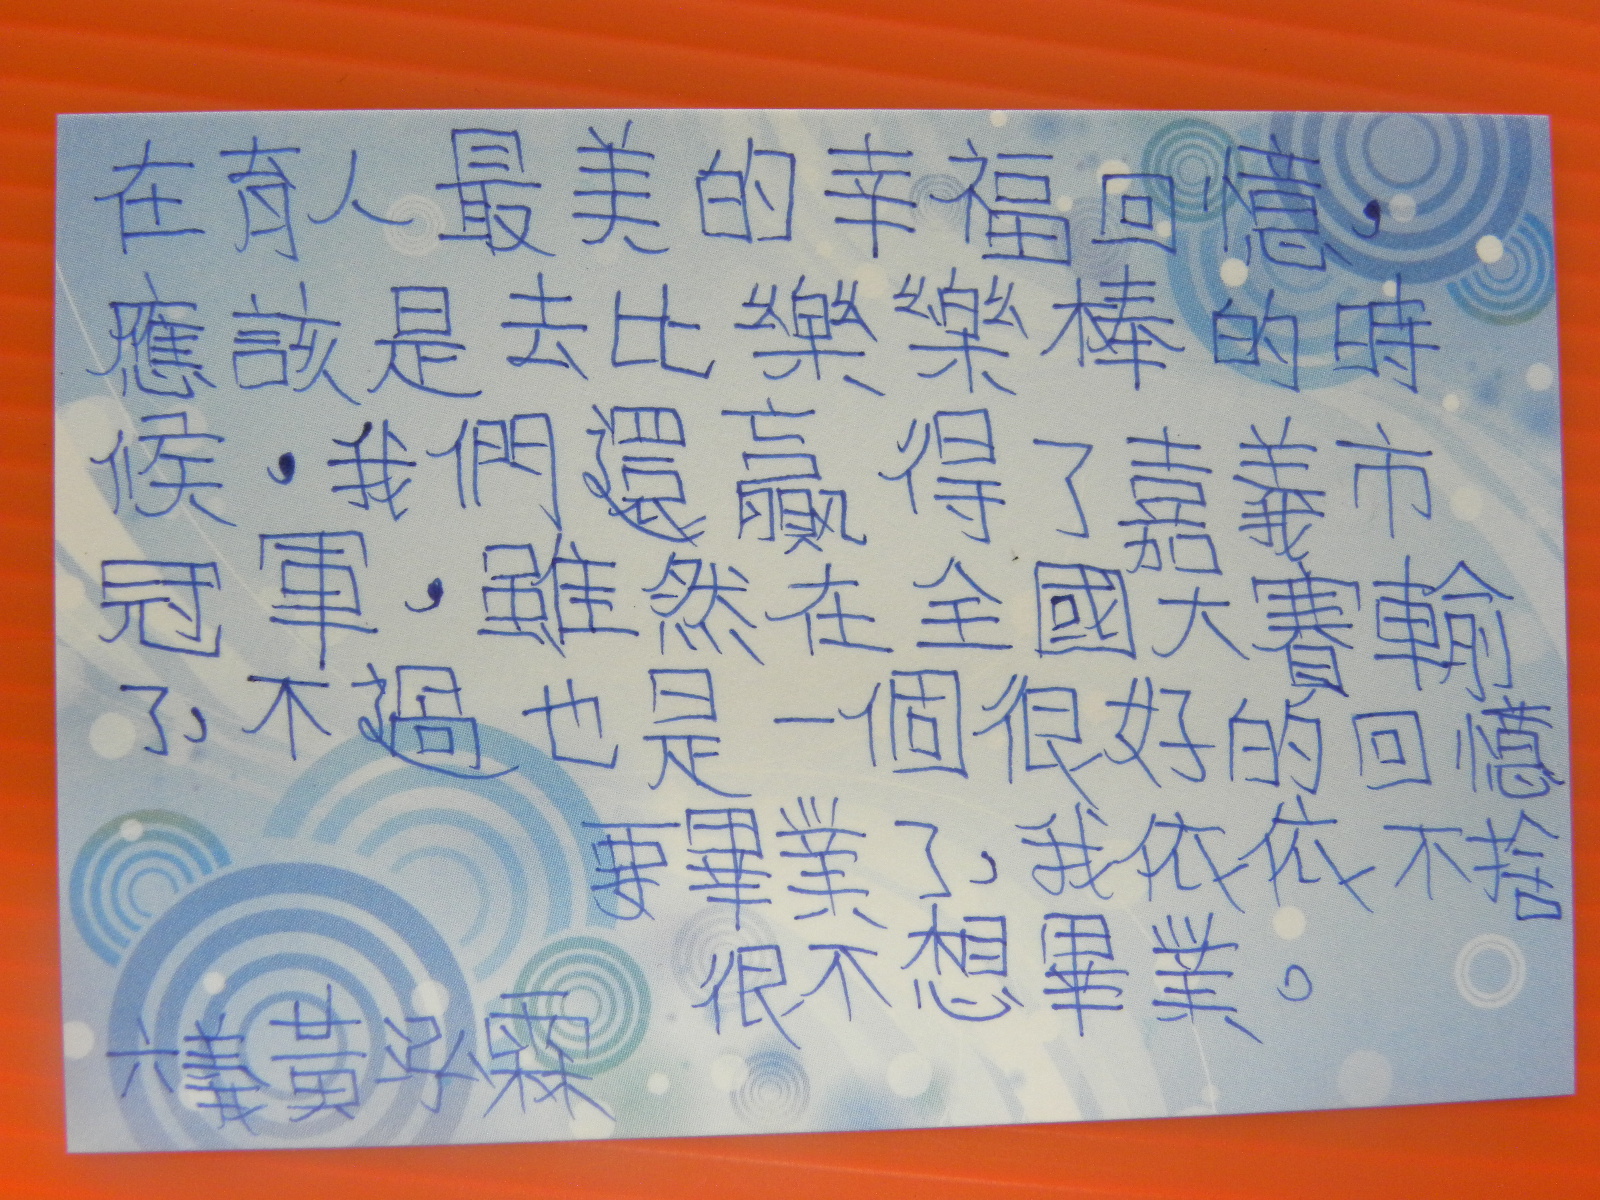 在育人最美的幸福回憶，
應該是去比樂樂棒的時
候，我們還贏得了嘉義市
冠軍，雖然在全國大賽輸
了，不過也是一個很好的回憶
要畢業了，我依依不捨
很不想畢業。
六義黃泓霖